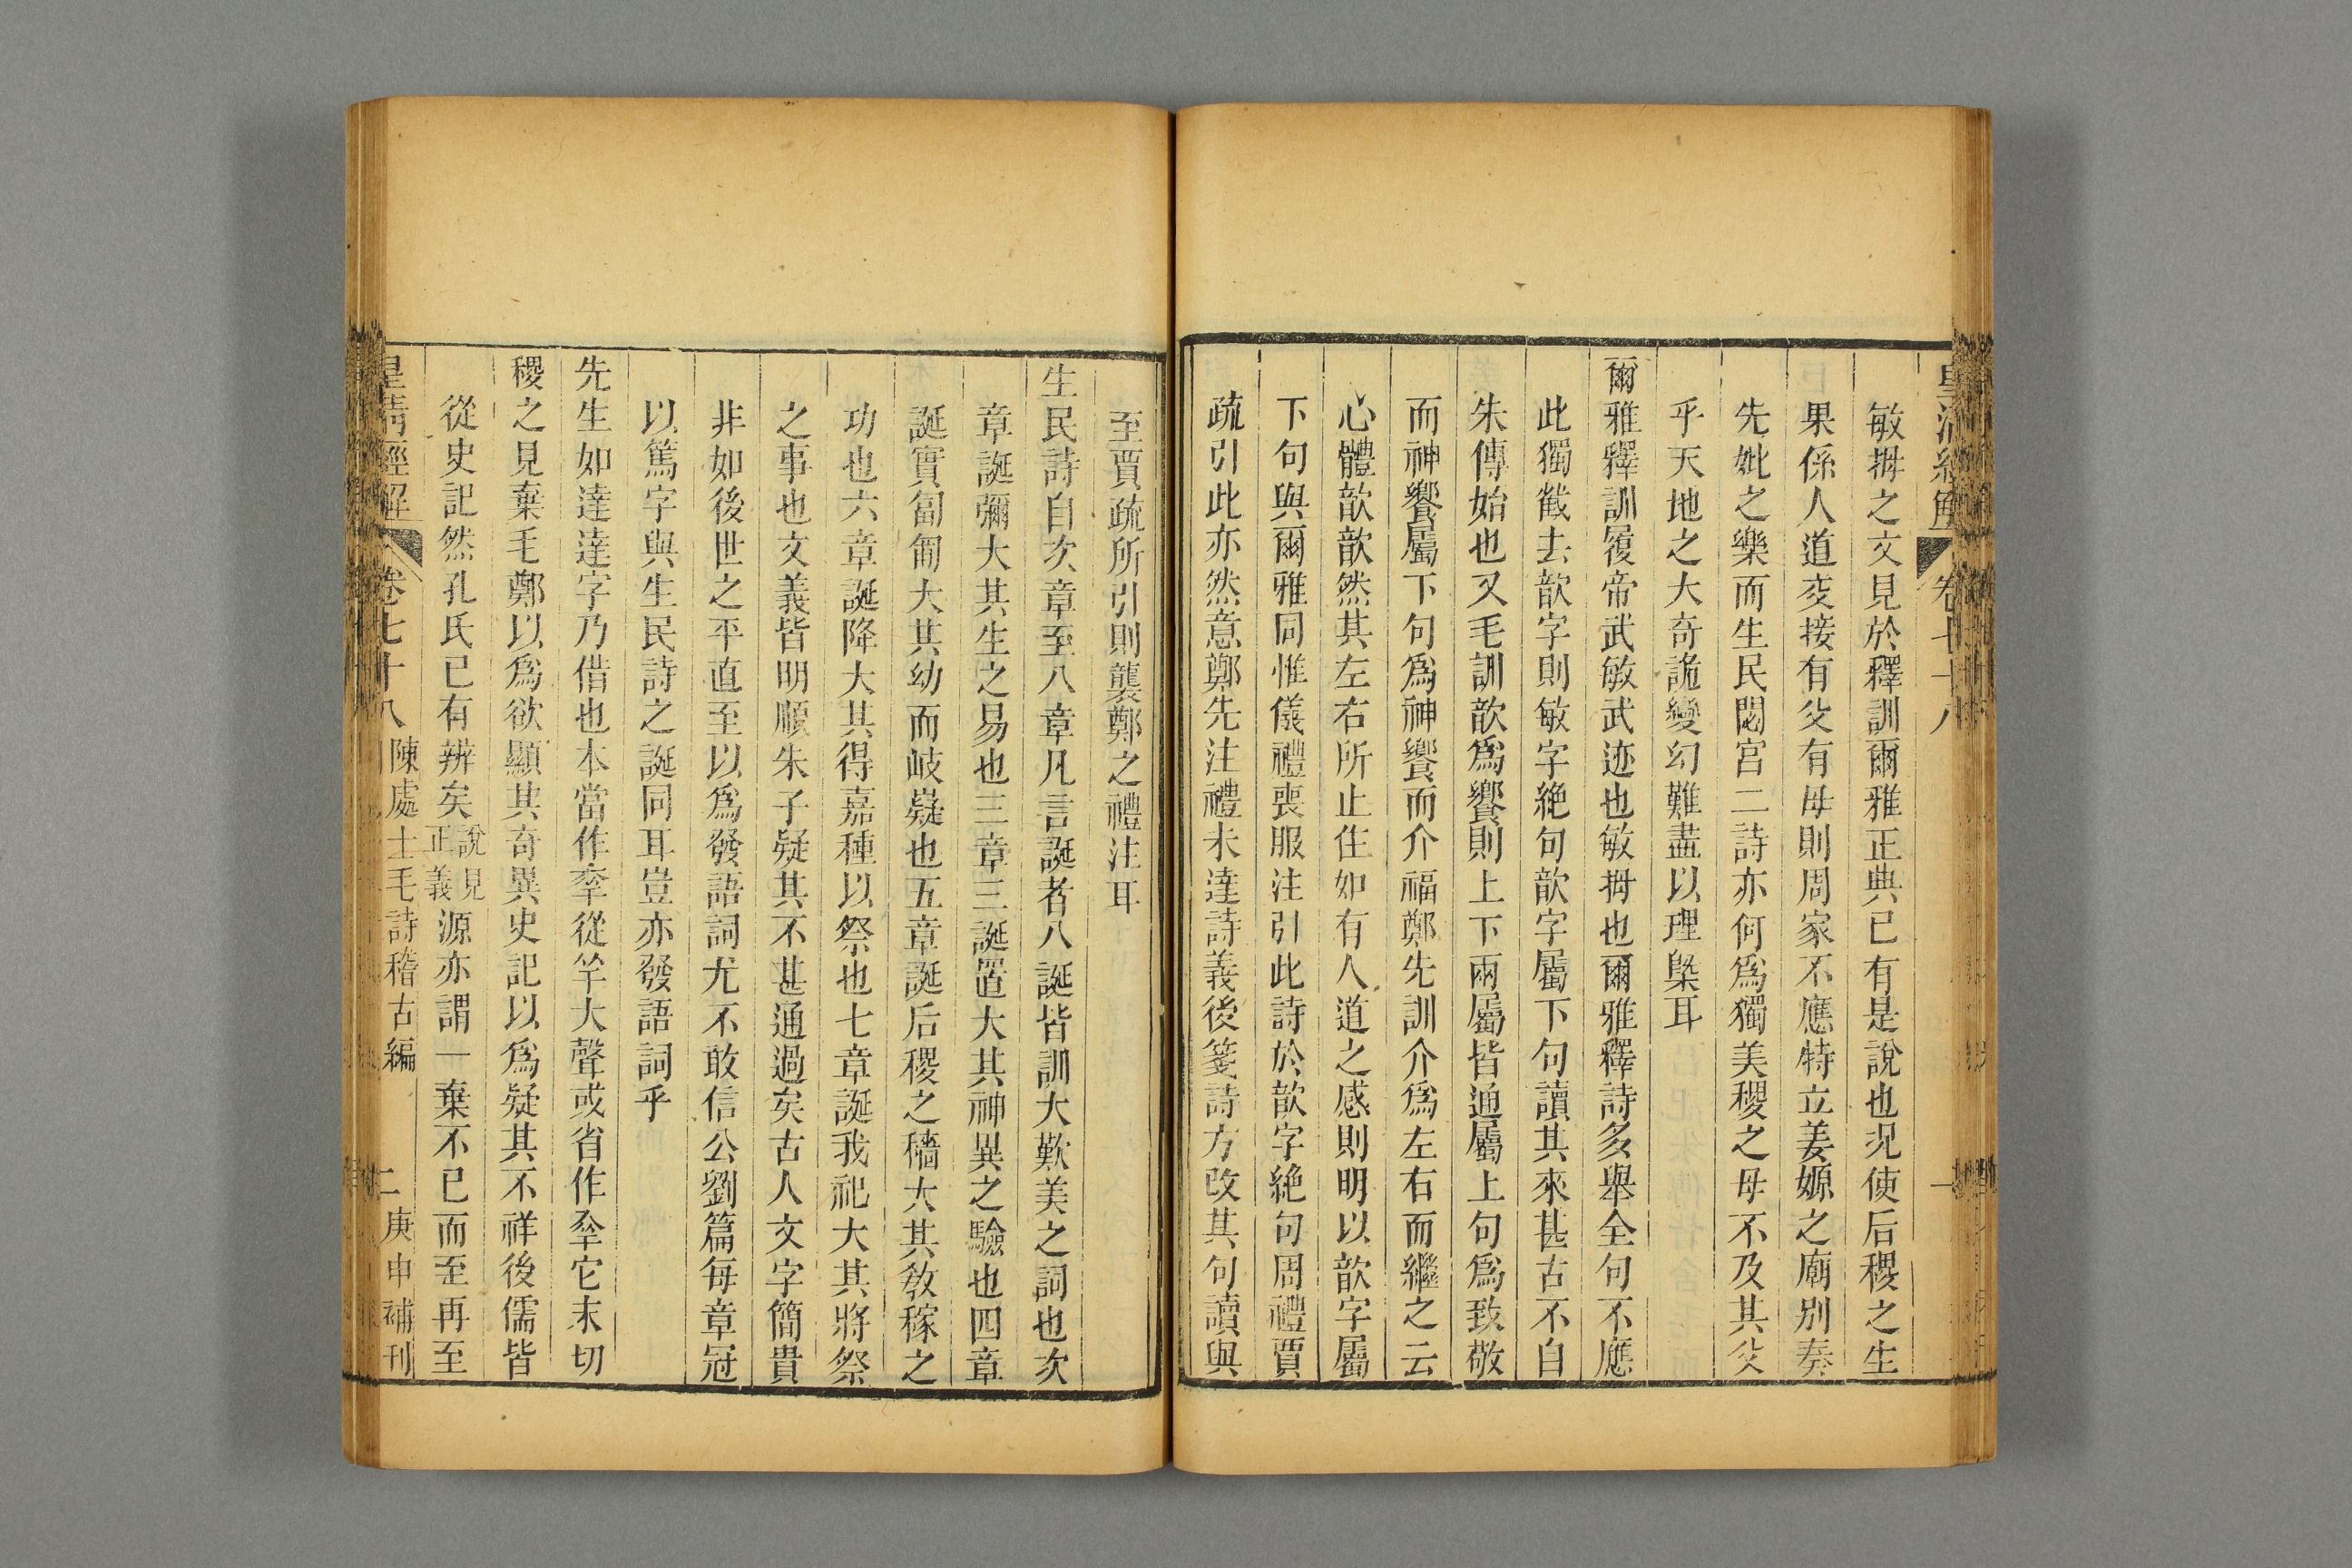 皇清經解 卷七十八 一
敏拇之文見於釋訓爾雅正典已有是說也况使后稷之生
果係人道交接有父有母則周家不應特立姜嫄之廟别奏
先妣之樂而生民閟宮二詩亦何爲獨美稷之母不及其父
乎天地之大奇詭變幻難盡以理槩耳
爾雅釋訓履帝武敏武迹也敏拇也爾雅釋詩多舉全句不應
此獨截去歆字則敏字絶句歆字屬下句讀其來甚古不自
朱傳始也又毛訓歆爲饗則上下兩屬皆通屬上句爲致敬
而神饗屬下句爲神饗而介福鄭先訓介爲左右而繼之云
心體歆歆然其左右所止住如有人道之感則明以歆字屬
下句與爾雅同惟儀禮喪服注引此詩於歆字絶句周禮賈
疏引此亦然意鄭先注禮未達詩義後箋詩方改其句讀與
至賈疏所引則襲鄭之禮注耳
生民詩自次章至八章凡言誕者八誕皆訓大歎美之詞也次
章誕彌大其生之易也三章三誕置大其神異之驗也四章
誕實匍匐大其幼而岐嶷也五章誕后稷之穡大其敎稼之
功也六章誕降大其得嘉種以祭也七章誕我祀大其將祭
之事也文義皆明順朱子疑其不甚通過矣古人文字簡貴
非如後世之平直至以爲發語詞尤不敢信公劉篇每章冠
以篤字與生民詩之誕同耳豈亦發語詞乎
先生如達達字乃借也本當作羍從羊大聲或省作𦍒它末切
稷之見棄毛鄭以爲欲顯其奇異史記以爲疑其不祥後儒皆
從史記然孔氏已有辨矣說見正義源亦謂一棄不已而至再至
皇清經解 卷七十八 陳處士毛詩稽古編 二 庚申補刊